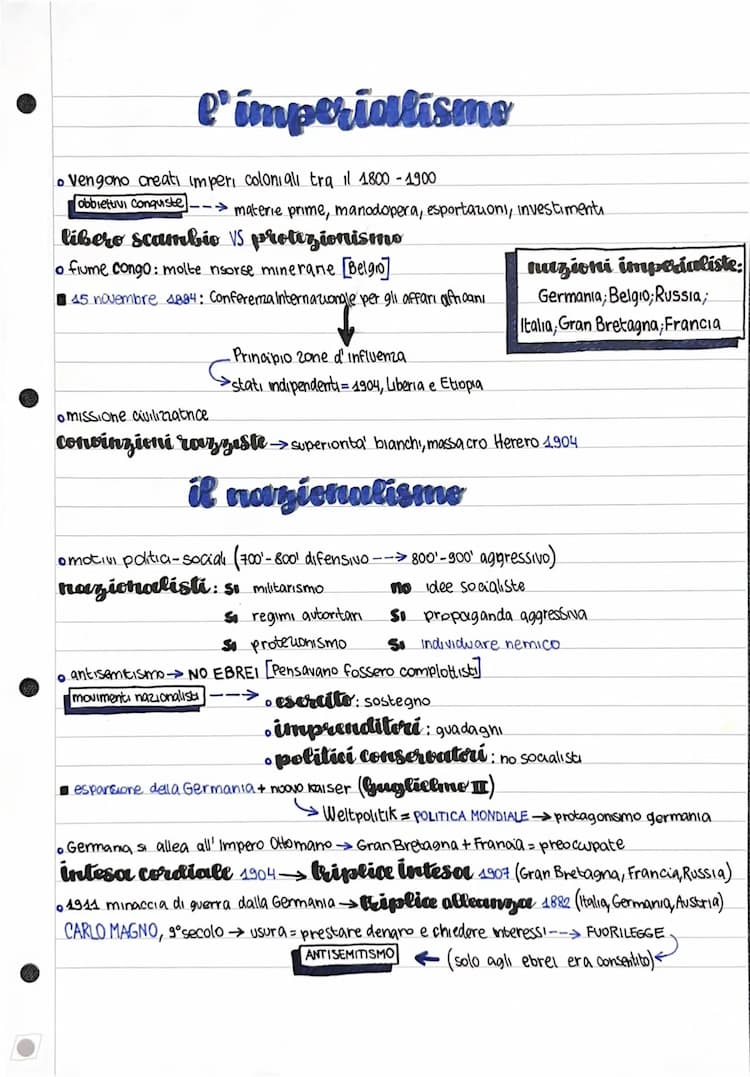 l'imperialismo
vengono creati imperi coloniali tra il 1800 - 1900
obbiettivi conquiste --> materie prime, manodopera, esportazioni, investimenti
libero scambio VS protezionismo
fiume congo: molte risorse minerarie [Belgio]
nazioni imperialiste:
Germania; Belgio; Russia;
Italia; Gran Bretagna; Francia
15 novembre 1884: Conferenza Internazionale per gli affari africani
Principio zone d'influenza
stati indipendenti = 1904, Liberia e Etiopia
missione civilizzatrice
convinzioni razziste → superiorità bianchi, massacro Herero 1904
il nazionalismo
motivi politici-sociali (700'-800' difensivo --> 800'-900' aggressivo)
nazionalisti: si militarismo no idee socialiste
si regimi autoritari si propaganda aggressiva
si protezionismo si individuare nemico
antisemitismo → NO EBREI [Pensavano fossero complottisti]
movimenti nazionalisti --> esercito: sostegno
imprenditori: guadagni
politici conservatori: no socialisti
espansione della Germania + nuovo kaiser (Guglielmo II)
Weltpolitik = POLITICA MONDIALE → protagonismo germania
Germania si allea all' Impero Ottomano → Gran Bretagna + Francia = preoccupate
intesa cordiale 1904 → triplice intesa 1907 (Gran Bretagna, Francia, Russia)
1911 minaccia di guerra dalla Germania → triplice alleanza 1882 (Italia, Germania, Austria)
CARLO MAGNO, 9° secolo → usura = prestare denaro e chiedere interessi --> FUORILEGGE
ANTISEMITISMO ← (solo agli ebrei era consentito)